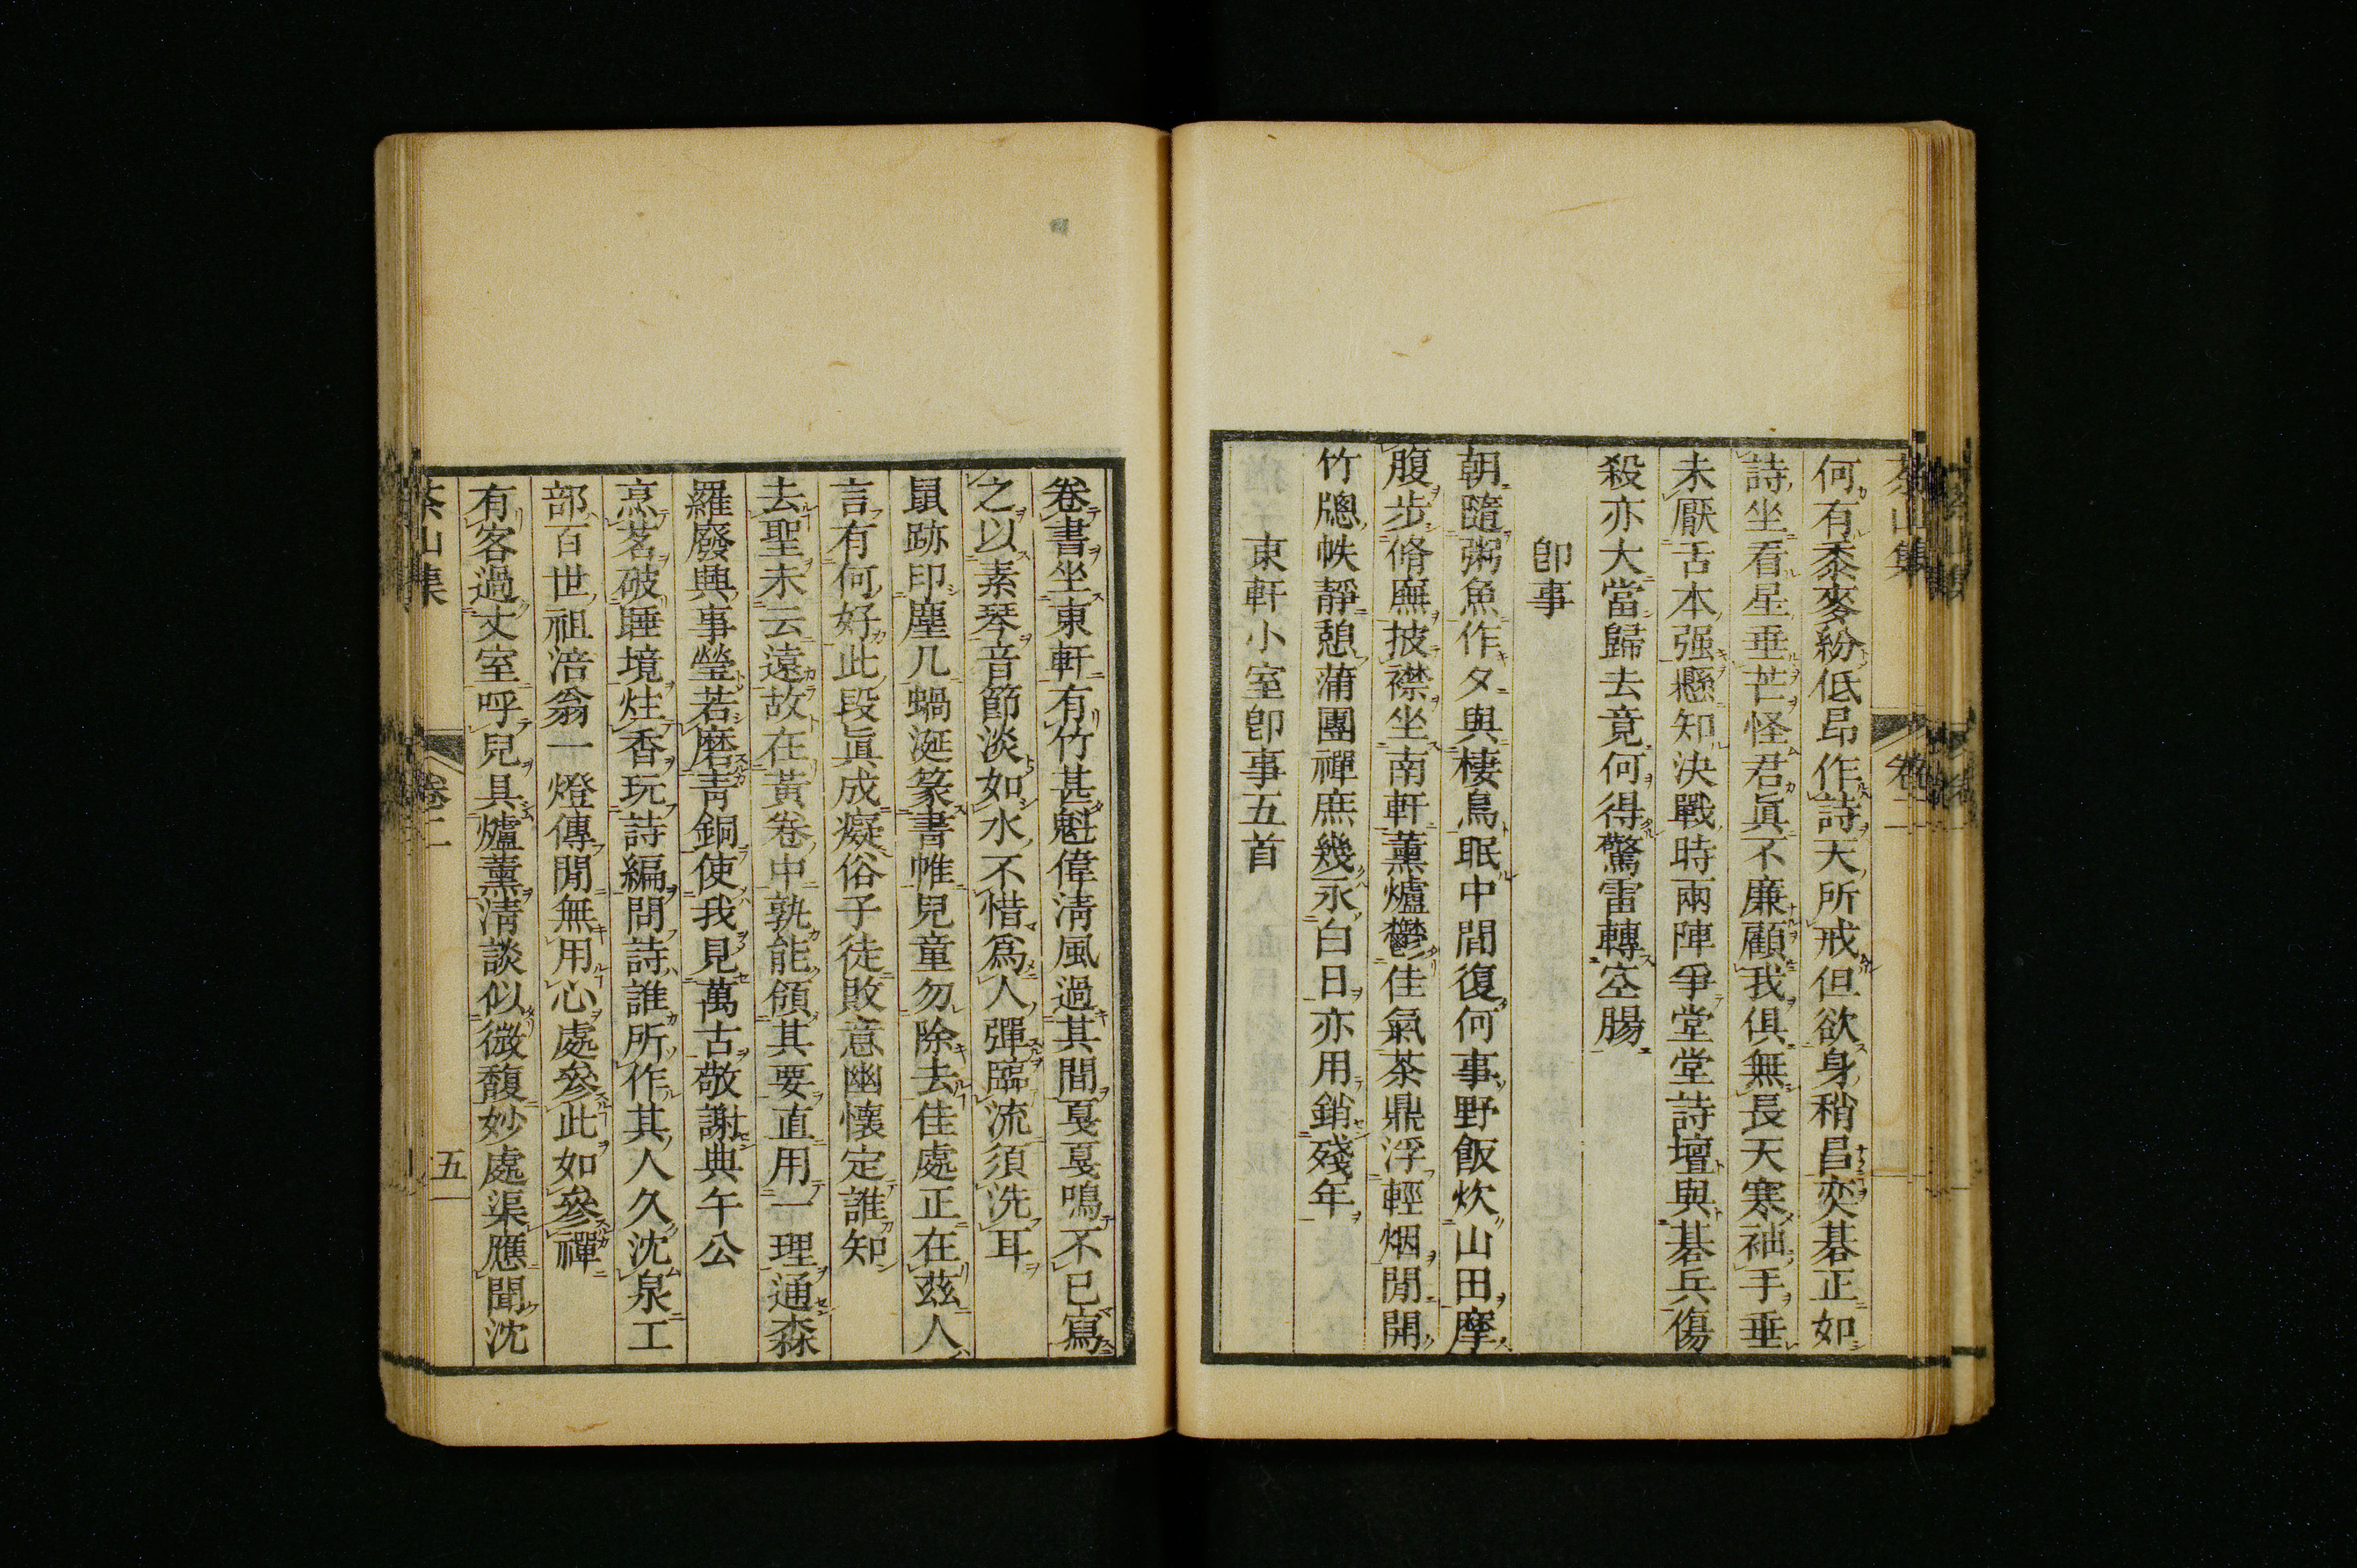 何有黍麥紛低昂作詩天所戒但欲身稍昌奕碁正如
詩坐看星垂芒怪君眞不廉顧我俱無長天寒袖手垂
未厭舌本强懸知決戰時兩陣爭堂堂詩壇與碁兵傷
殺亦大當歸去竟何得驚雷轉空腸
卽事
朝隨粥魚作夕與棲鳥眠中間復何事野飯炊山田摩
腹步脩廡披襟坐南軒薰爐鬱佳氣茶鼎浮輕烟閒開
竹牕帙靜憩蒲團禪庶幾永白日亦用銷殘年
東軒小室卽事五首
卷書坐東軒有竹甚魁偉淸風過其間戛戛鳴不已寫
之以素琴音節淡如水不惜爲人彈臨流須洗耳
鼠跡印塵几蝸涎篆書帷兒童勿除去佳處正在茲人
言有何好此段眞成癡俗子徒敗意幽懷定誰知
去聖未云遠故在黃卷中孰能領其要直用一理通森
羅廢興事瑩若磨靑銅使我見萬古敬謝典午公
烹茗破睡境炷香玩詩編問詩誰所作其人久沈泉工
部百世祖涪翁一燈傳閒無用心處參此如參禪
有客過丈室呼兒具爐薰淸談似微馥妙處渠應聞沈
茶山集 卷二 五